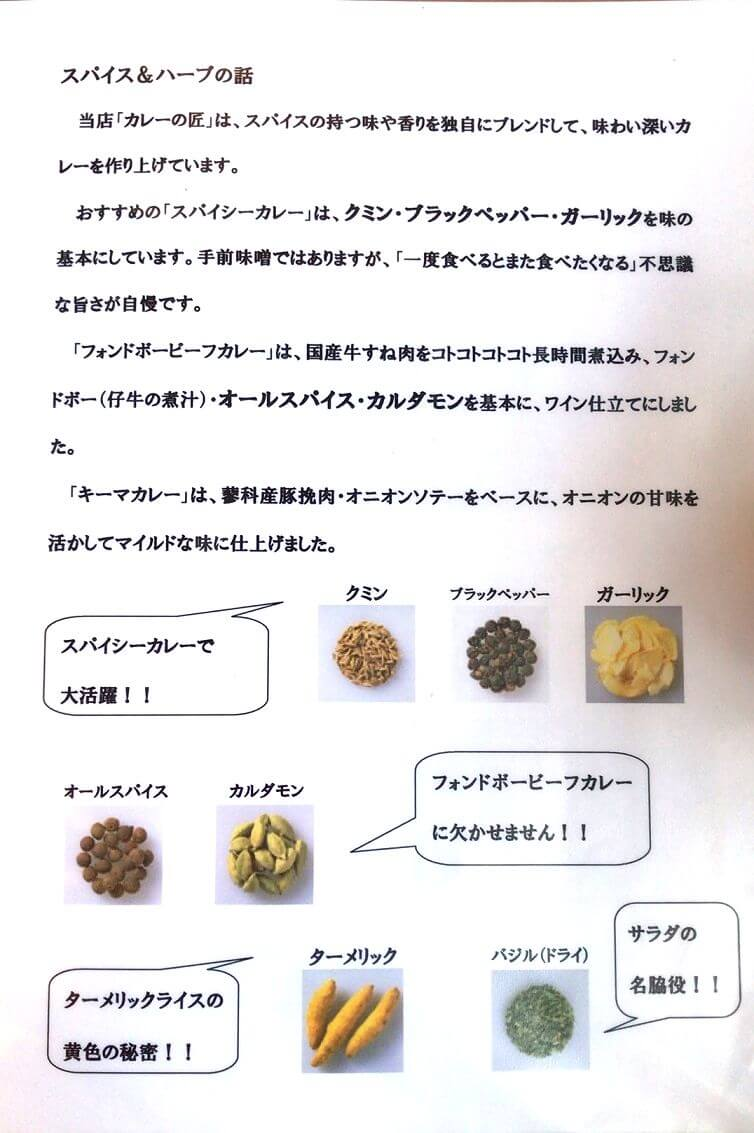 スパイス＆ハーブの話
当店「カレーの匠」は、スパイスの持つ味や香りを独自にブレンドして、味わい深いカ
レーを作り上げています。
おすすめの「スパイシーカレー」は、クミン・ブラックペッパー・ガーリックを味の
基本にしています。手前味噌ではありますが、「一度食べるとまた食べたくなる」不思議
な旨さが自慢です。
「フォンドボービーフカレー」は、国産牛すね肉をコトコトコトコト長時間煮込み、フォン
ドボー（仔牛の煮汁）・オールスパイス・カルダモンを基本に、ワイン仕立てにしまし
た。
「キーマカレー」は、蓼科産豚挽肉・オニオンソテーをベースに、オニオンの甘味を
活かしてマイルドな味に仕上げました。
クミン
ブラックペッパー
ガーリック
スパイシーカレーで
大活躍！！
オールスパイス
カルダモン
フォンドボービーフカレー
に欠かせません！！
ターメリック
バジル（ドライ）
サラダの
名脇役！！
ターメリックライスの
黄色の秘密！！